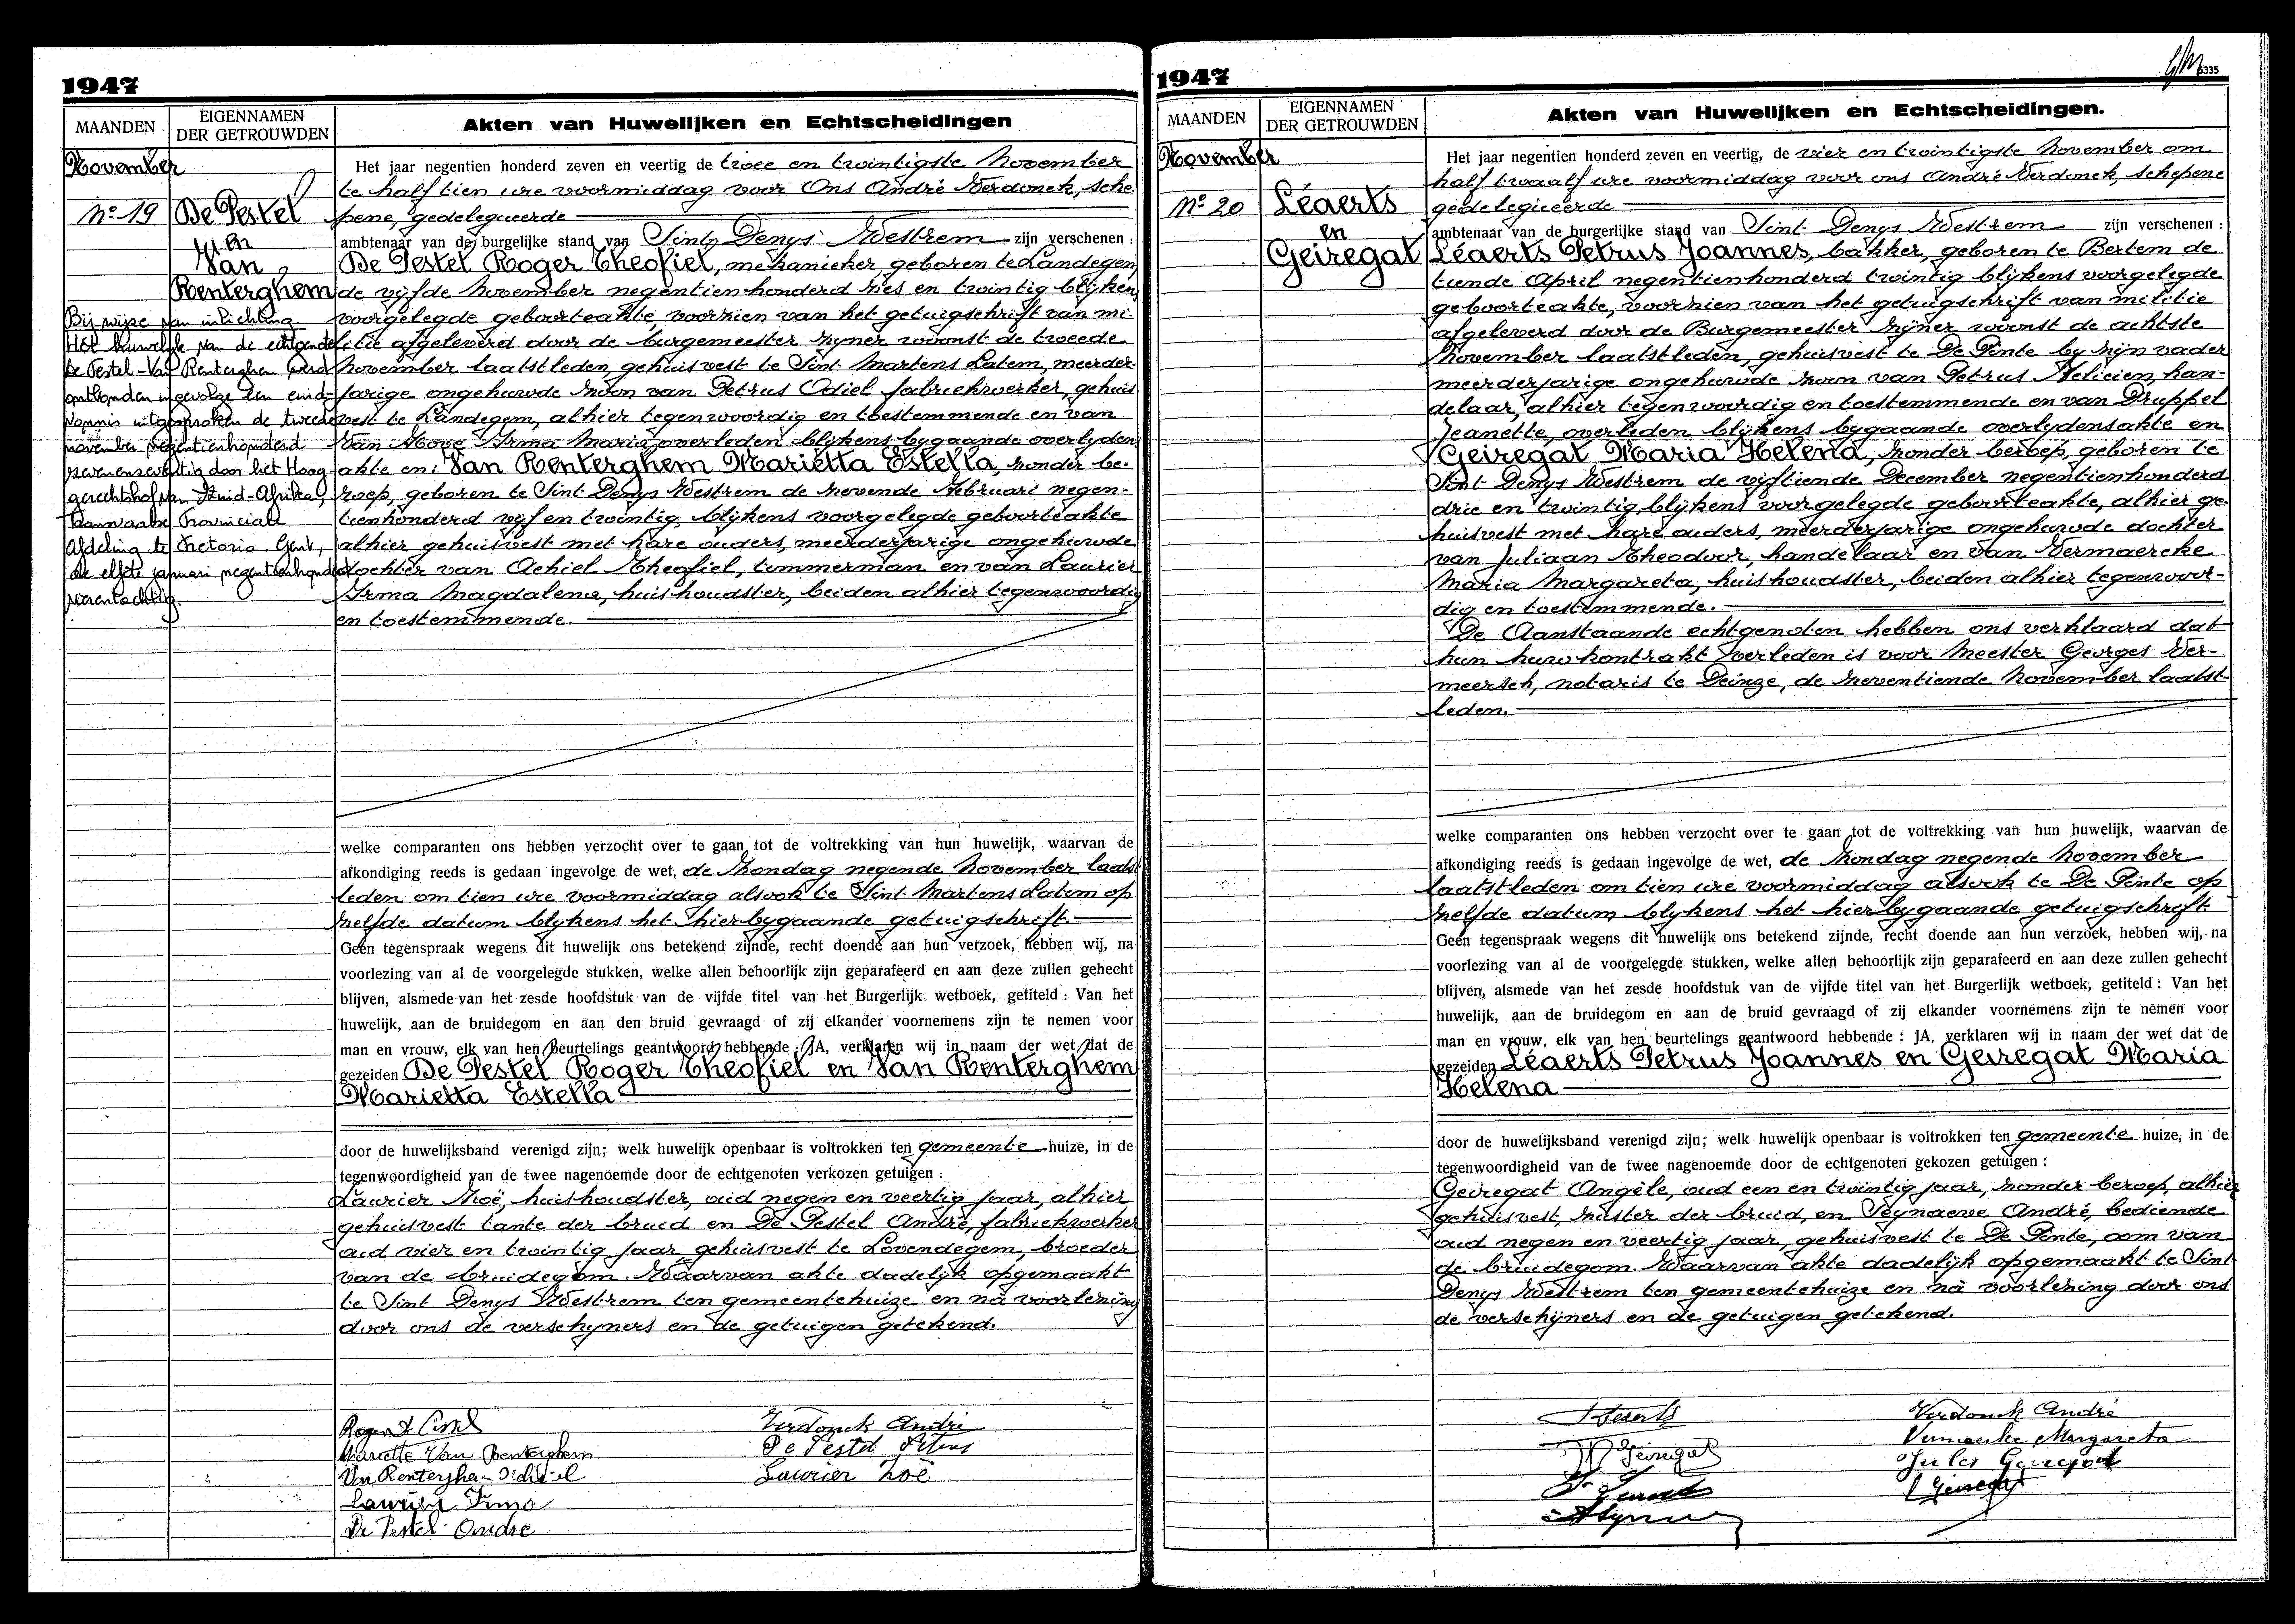 1947
MAANDEN
EIGENNAMEN
DER GETROUWDEN
Akten van Huwelijken en Echtscheidingen
November
Nº 19
De Pestel
en
Van
Renterghem
Bij wijze van inlichting.
Het huwelijk van de echtgenoten
De Pestel-Van Renterghem werd
ontbonden ingevolge een eind-
vonnis uitgesproken de tweede
november negentienhonderd
zevenenzeventig door het Hoog
gerechtshof van Zuid-Afrika,
Transvaalse Provinciale
Afdeling te Pretoria. Gent,
de elfde januari negentienhonderd
Het jaar negentien honderd zeven en veertig de twee en twintigste November
te half tien ure voormiddag voor Ons André Verdonck, sche
pene, gedelegueerde
ambtenaar van de burgelijke stand van Sint Denys Westrem zijn verschenen :
De Pestel Roger Theofiel, mekanieker, geboren te Landegem
de vijfde November negentienhonderd zes en twintig blijkens
voorgelegde geboorteakte, voorzien van het getuigschrift van mi-
litie afgeleverd door de burgemeester zyner woonst de tweede
November laatstleden, gehuisvest te Sint Martens Latem, meerder-
jarige ongehuwde zoon van Petrus Odiel fabriekwerker, gehuis
vest te Landegem, alhier tegenwoordig en toestemmende en van
Van Hove Irma Maria, overleden blijkens bygaande overlydens
akte en: Van Renterghem Mariëtta Estella, zonder be-
roep, geboren te Sint Denys Westrem de zevende Februari negen-
tienhonderd vijf en twintig, blijkens voorgelegde geboorteakte
alhier gehuisvest met hare ouders, meerderjarige ongehuwde
dochter van Achiel Theofiel, timmerman en van Laurier
Irma Magdalena, huishoudster, beiden alhier tegenwoordig
en toestemmende.
welke comparanten ons hebben verzocht over te gaan tot de voltrekking van hun huwelijk, waarvan de
afkondiging reeds is gedaan ingevolge de wet, de Zondag negende November laatst
leden om tien ure voormiddag alsook te Sint Martens Latem op
zelfde datum blykens het hierbygaande getuigschrift.
Geen tegenspraak wegens dit huwelijk ons betekend zijnde, recht doende aan hun verzoek, hebben wij, na
voorlezing van al de voorgelegde stukken, welke allen behoorlijk zijn geparafeerd en aan deze zullen gehecht
blijven, alsmede van het zesde hoofdstuk van de vijfde titel van het Burgerlijk wetboek, getiteld : Van het
huwelijk, aan de bruidegom en aan den bruid gevraagd of zij elkander voornemens zijn te nemen voor
man en vrouw, elk van hen beurtelings geantwoord hebbende : JA, verklaren wij in naam der wet dat de
gezeiden De Pestel Roger Theofiel en Van Renterghem
Marietta Estella
door de huwelijksband verenigd zijn; welk huwelijk openbaar is voltrokken ten gemeente huize, in de
tegenwoordigheid van de twee nagenoemde door de echtgenoten verkozen getuigen :
Laurier Zoë, huishoudster, oud negen en veertig jaar, alhier
gehuisvest tante der bruid en De Pestel André, fabriekwerker
oud vier en twintig jaar gehuisvest te Lovendegem, broeder
van de bruidegom. Waarvan akte dadelyk opgemaakt
te Sint Denys Westrem ten gemeentehuize en nà voorlezing
door ons de verschyners en de getuigen getekend.
Mariette Van Renterghem
Van Renterghem Achiel
Laurier Irma
De Pestel André
Verdonck André
De Pestel Petrus
Laurier Zoë
1947
5335
MAANDEN
EIGENNAMEN
DER GETROUWDEN
Akten van Huwelijken en Echtscheidingen.
November
Nº 20
Léaerts
en
Geiregat
Het jaar negentien honderd zeven en veertig, de vier en twintigste November om
half twaalf ure voormiddag voor ons André Verdonck, schepene
gedelegueerde
ambtenaar van de burgerlijke stand van Sint Denys Westrem zijn verschenen :
Léaerts Petrus Joannes, bakker, geboren te Bertem de
tiende April negentienhonderd twintig blijkens voorgelegde
geboorteakte, voorzien van het getuigschrift van militie
afgeleverd door de Burgemeester zijner woonst de achtste
November laatstleden, gehuisvest te De Pinte by zijn vader
meerderjarige ongehuwde zoon van Petrus Felicien, han-
delaar, alhier tegenwoordig en toestemmende en van Druppel
Jeanette, overleden blijkens bygaande overlydensakte en
Geiregat Maria Helena, zonder beroep, geboren te
Sint Denys Westrem de vijftiende December negentienhonderd
drie en twintig, blijkens voorgelegde geboorteakte, alhier ge-
huisvest met hare ouders, meerderjarige ongehuwde dochter
van Juliaan Theodoor, handelaar en van Vermaercke
Maria Margareta, huishoudster, beiden alhier tegenwoor-
dig en toestemmende.
De Aanstaande echtgenoten hebben ons verklaard dat
hun huwkontrakt verleden is voor Meester Georges Ver-
meersch, notaris te Deinze, de zeventiende November laatst-
leden.
welke comparanten ons hebben verzocht over te gaan tot de voltrekking van hun huwelijk, waarvan de
afkondiging reeds is gedaan ingevolge de wet, de Zondag negende November
laatstleden om tien ure voormiddag alsook te De Pinte op
zelfde datum blykens het hierbygaande getuigschrift.
Geen tegenspraak wegens dit huwelijk ons betekend zijnde, recht doende aan hun verzoek, hebben wij, na
voorlezing van al de voorgelegde stukken, welke allen behoorlijk zijn geparafeerd en aan deze zullen gehecht
blijven, alsmede van het zesde hoofdstuk van de vijfde titel van het Burgerlijk wetboek, getiteld : Van het
huwelijk, aan de bruidegom en aan de bruid gevraagd of zij elkander voornemens zijn te nemen voor
man en vrouw, elk van hen beurtelings geantwoord hebbende : JA, verklaren wij in naam der wet dat de
gezeiden Léaerts Petrus Joannes en Geiregat Maria
Helena
door de huwelijksband verenigd zijn; welk huwelijk openbaar is voltrokken ten gemeente huize, in de
tegenwoordigheid van de twee nagenoemde door de echtgenoten gekozen getuigen :
Geiregat Angèle, oud een en twintig jaar, zonder beroep, alhier
gehuisvest, zuster der bruid, en Peynaeve André, bediende
oud negen en veertig jaar, gehuisvest te De Pinte, oom van
de bruidegom. Waarvan akte dadelyk opgemaakt te Sint
Denys Westrem ten gemeentehuize en nà voorlezing door ons
de verschijners en de getuigen getekend.
Geiregat
Verdonck André
Vermaercke Margareta
Jules Geiregat
Geiregat